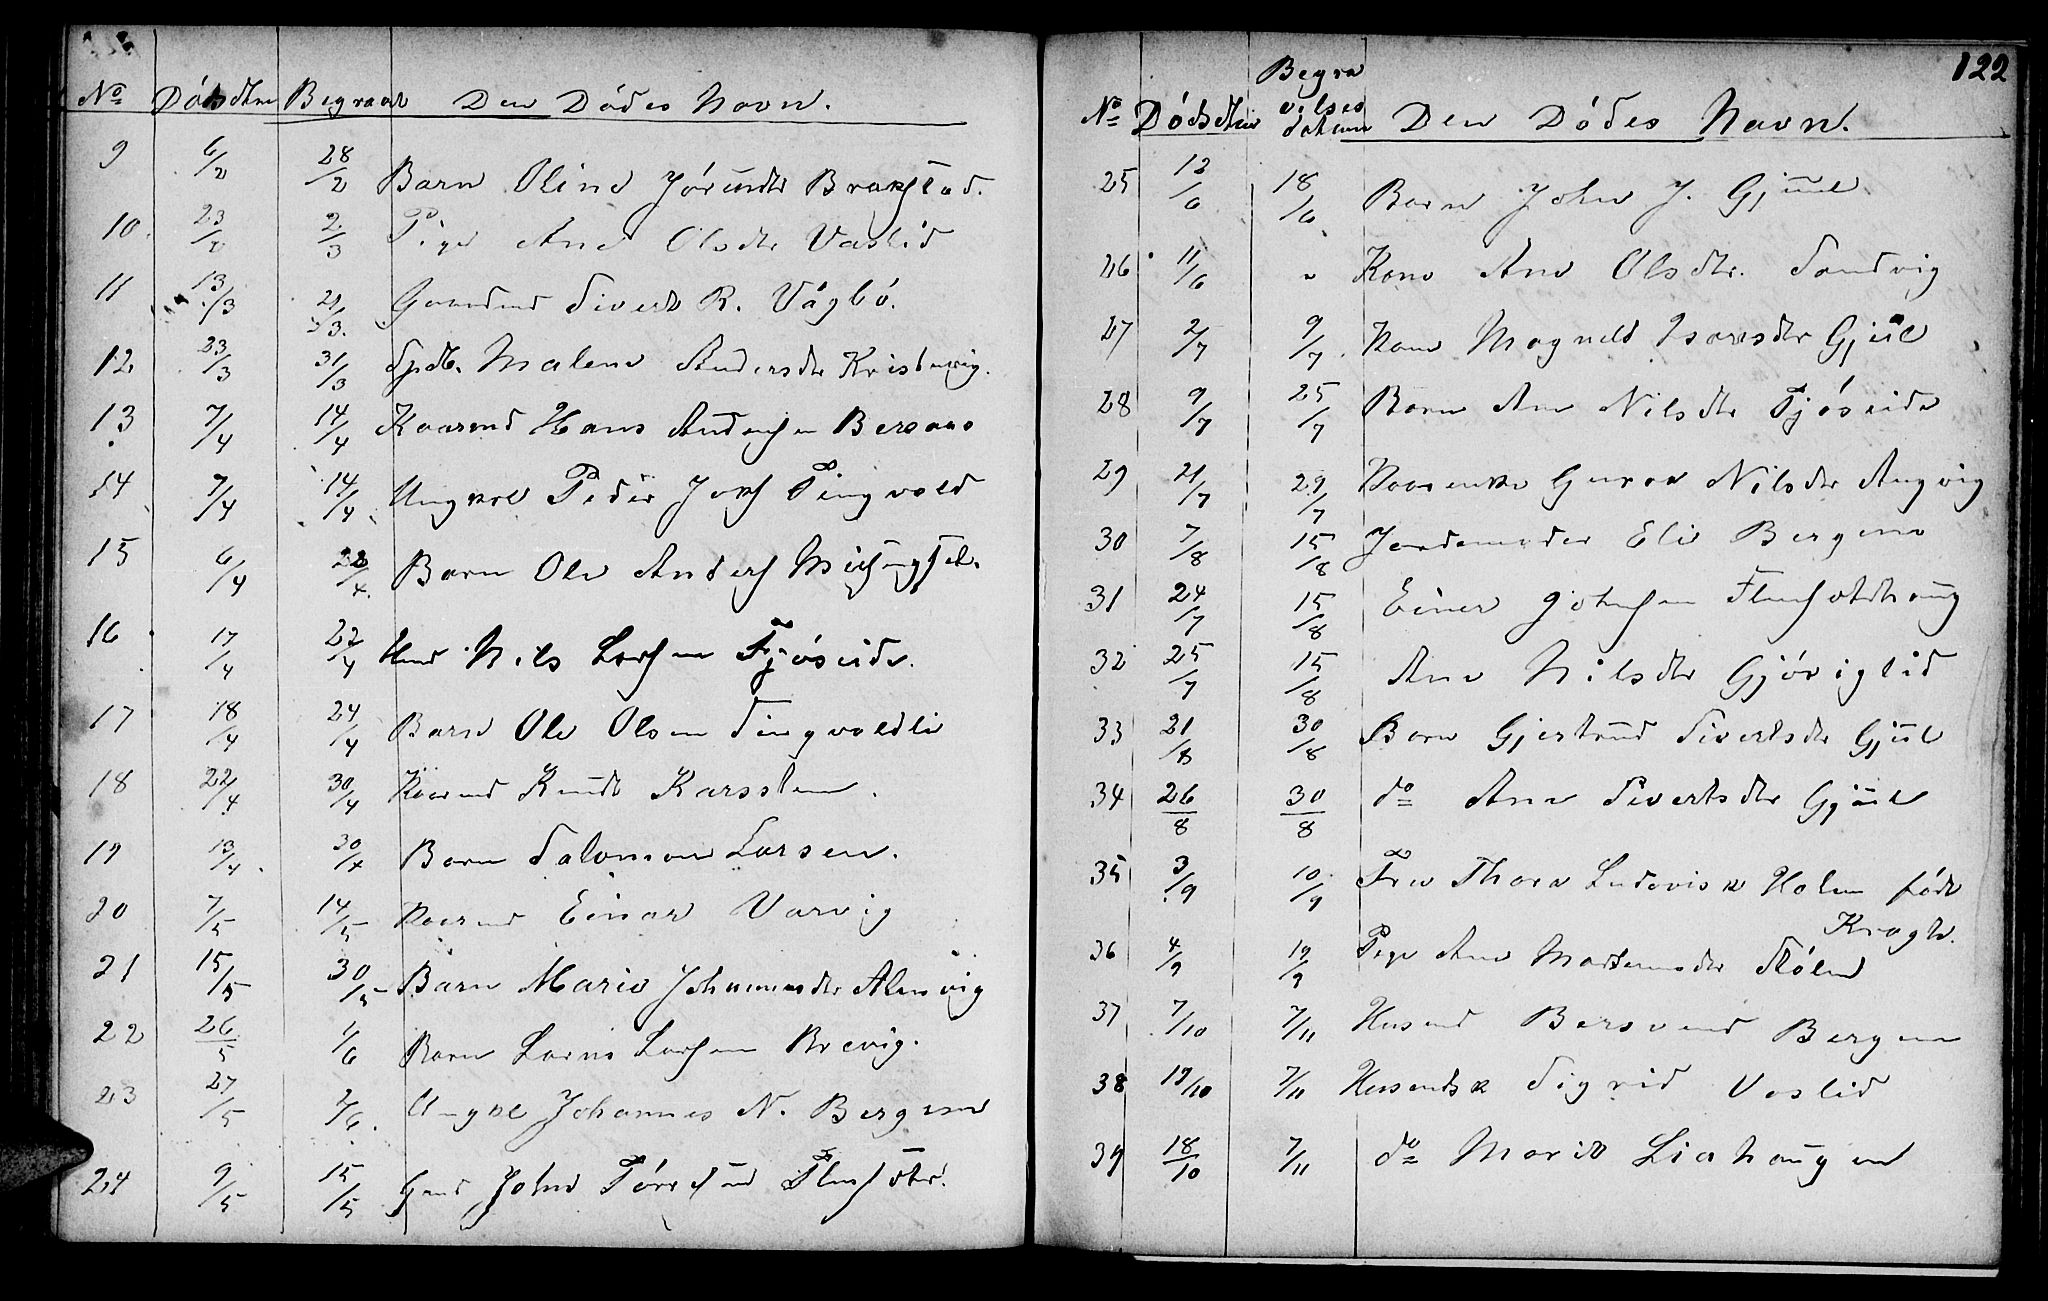 No Dödsdtm Begravel Den Dödes Navn.
9 6/2 28/2 Barn Oline Jörundtr Brakstad.
10. 23/2 2/3 Pige Ane Olsdtr Vaslid
11 13/3 21/3. Gaardmd Sivert R. Vågbö.
12 23/3 31/3 Malene Andersdtr Kristvig.
13 7/4 14/4 Kaarmd Hans Andersen Bersaas
14 7/4 14/4 Ungkrl Peder Tingvold
15 6/4 Barn Ole Anders
16 17/4 22/4 Nils Larsen Fjöseide.
17 18/4 24/4 Barn Ole Olsen Tingvoldli
18 22/4 30/4 Kaarmd Knudt Karssten.
19 13/4. 30/4 Barn Salomon Larsen.
20 7/5 14/5 Kaarmd Einar Varvig
21 15/5 30/5 Barn Marie Johannesdtr Almvig
22 26/5 1/6 Barn Larns Larsen Brevig.
23 27/5 2/6. Ungkl Johannes N. Bergem
24 9/5 15/5 Gmd John Törresen
122
No Dödsdtm Begravelses datum Den Dödes Navn.
25 12/6 18/6 Barn John J. Gjül.
26 11/6 " Kone Ane Olsdtr. Sandvig
27 2/7 9/7. Kone Magnild Isaksdtr Gjül
28 9/7 25/7 Barn Ane Nilsdtr Fjöseide
29 21/7 29/7 Kaarenke Guroe Nilsdtr Angvig
30 7/8 15/8 Jordemoder Eli Bergem
31 24/7 15/8 Einer Johnsen
32 25/7 15/8 Ane Nilsdtr Gjöviglid
33 21/8 30/8 Barn Gjertrud Sivertsdtr Gjül
34 26/8 30/8 do Ane Sivertsdtr Gjül
35 3/9 10/9 Fru Thora Ludoviska Holm födt
Kragh.
36 4/9 19/9 Pige Ane Mortensdtr Stölen
37 7/10 7/11 Husmd Bersvend Bergem
38 19/10 7/11 Husmdsk Sigrid Vaslid
39 18/10 7/11 do Marit Liahaugen